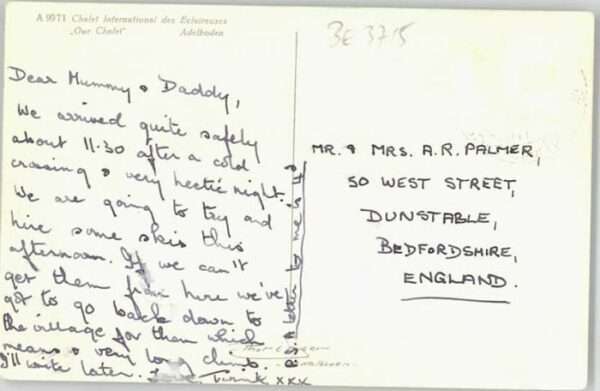 A 9971 Chalet International des Eclaireuses
„Our Chalet" Adelboden
BE 3715
Dear Mummy & Daddy,
We arrived quite safely
about 11.30 after a cold
crossing & very hectic night.
We are going to try and
hire some skis this
afternoon. If we can't
get them from here we've
got to go back down to
the village for them which
means a very long climb.
I'll write later. Love, xxx
P.S. A letter to me is 4d
MR. & MRS. A.R. PALMER,
50 WEST STREET,
DUNSTABLE,
BEDFORDSHIRE,
ENGLAND.